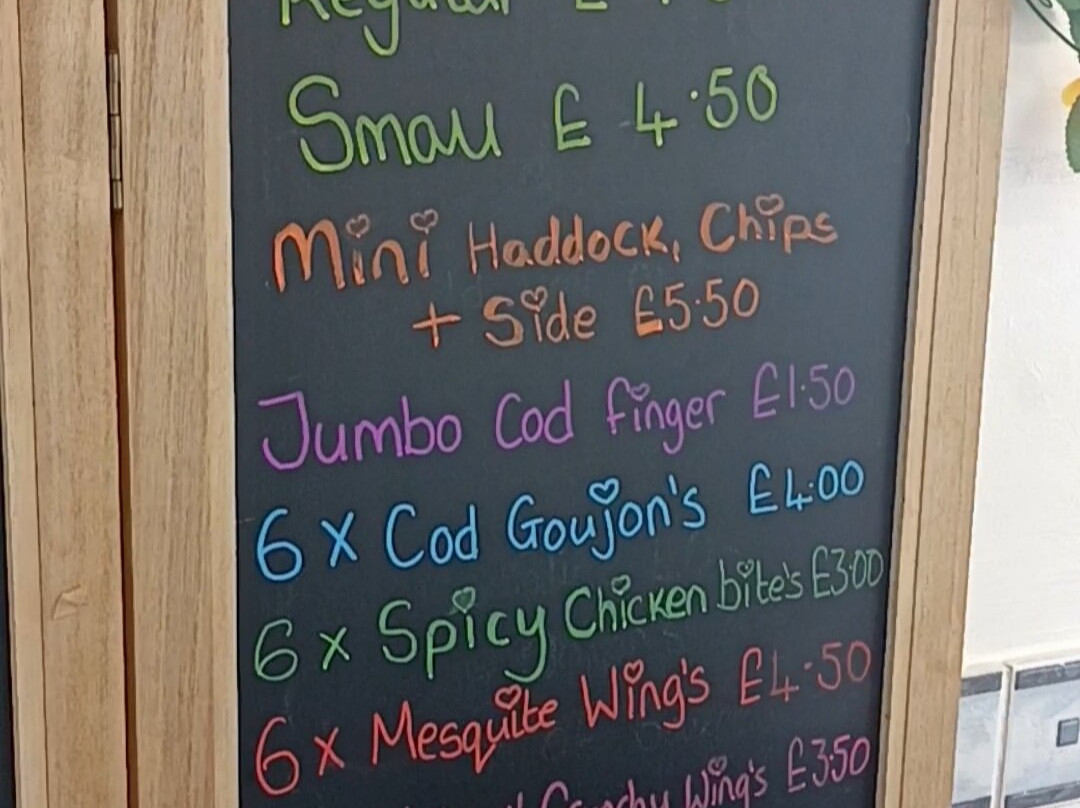 Regular £
Small £ 4.50
Mini Haddock, Chips
+ Side £5.50
Jumbo Cod finger £1.50
6 x Cod Goujon's £4.00
6 x Spicy Chicken bite's £3.00
6 x Mesquite Wing's £4.50
Wing's £3.50